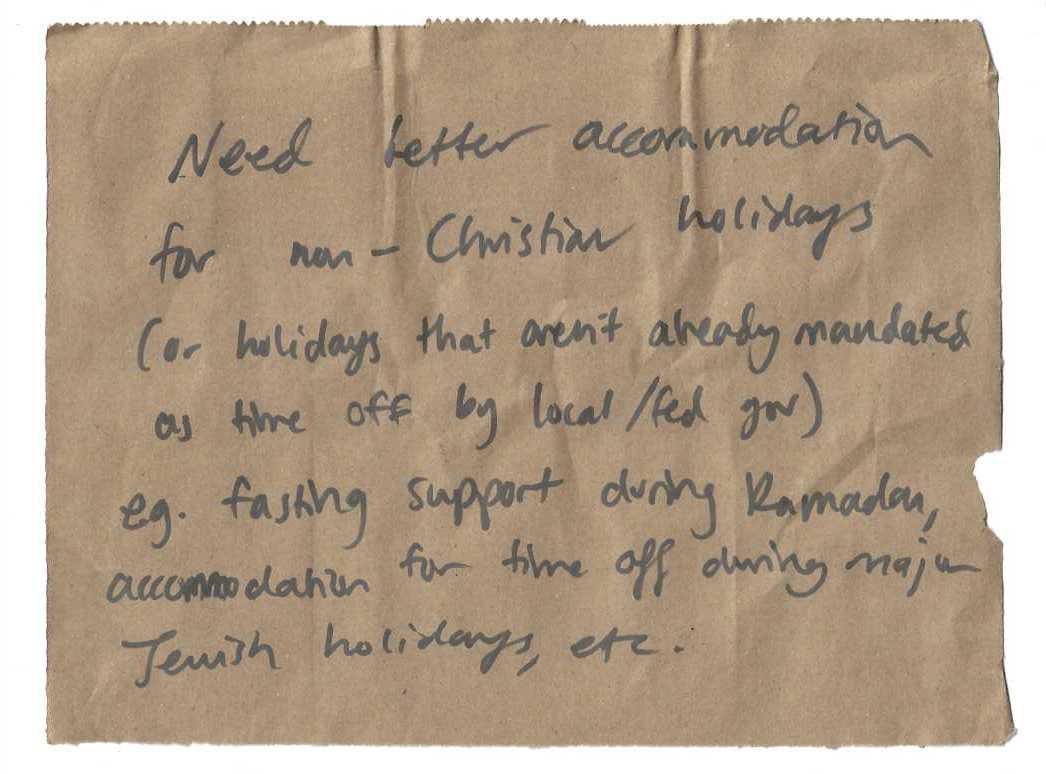 Need better accommodation
for non-Christian holidays
(or holidays that aren't already mandated
as time off by local/fed gov)
eg. fasting support during Ramadan,
accommodation for time off during major
Jewish holidays, etc.